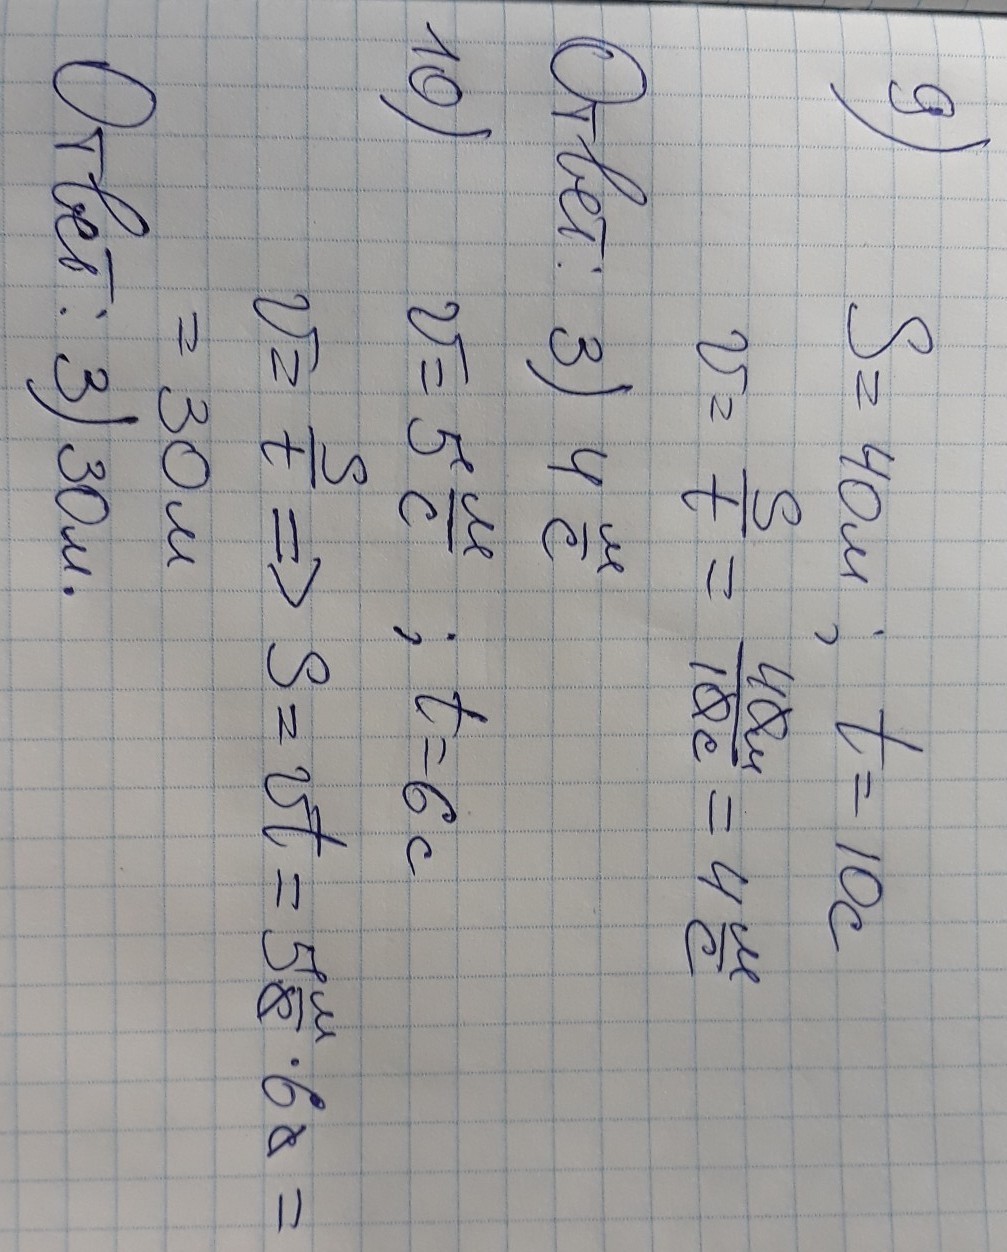 9)
S = 40м ; t = 10с
v = S/t = 40м/10с = 4 м/с
Ответ: 3) 4 м/с
10)
v = 5 м/с ; t = 6 с
v = S/t => S = vt = 5 м/с · 6с =
= 30м
Ответ: 3) 30м.